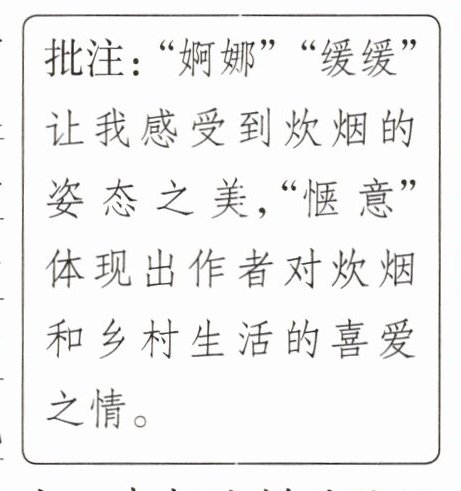 批注：“婀娜”“缓缓”
让我感受到炊烟的
姿态之美，“惬意”
体现出作者对炊烟
和乡村生活的喜爱
之情。